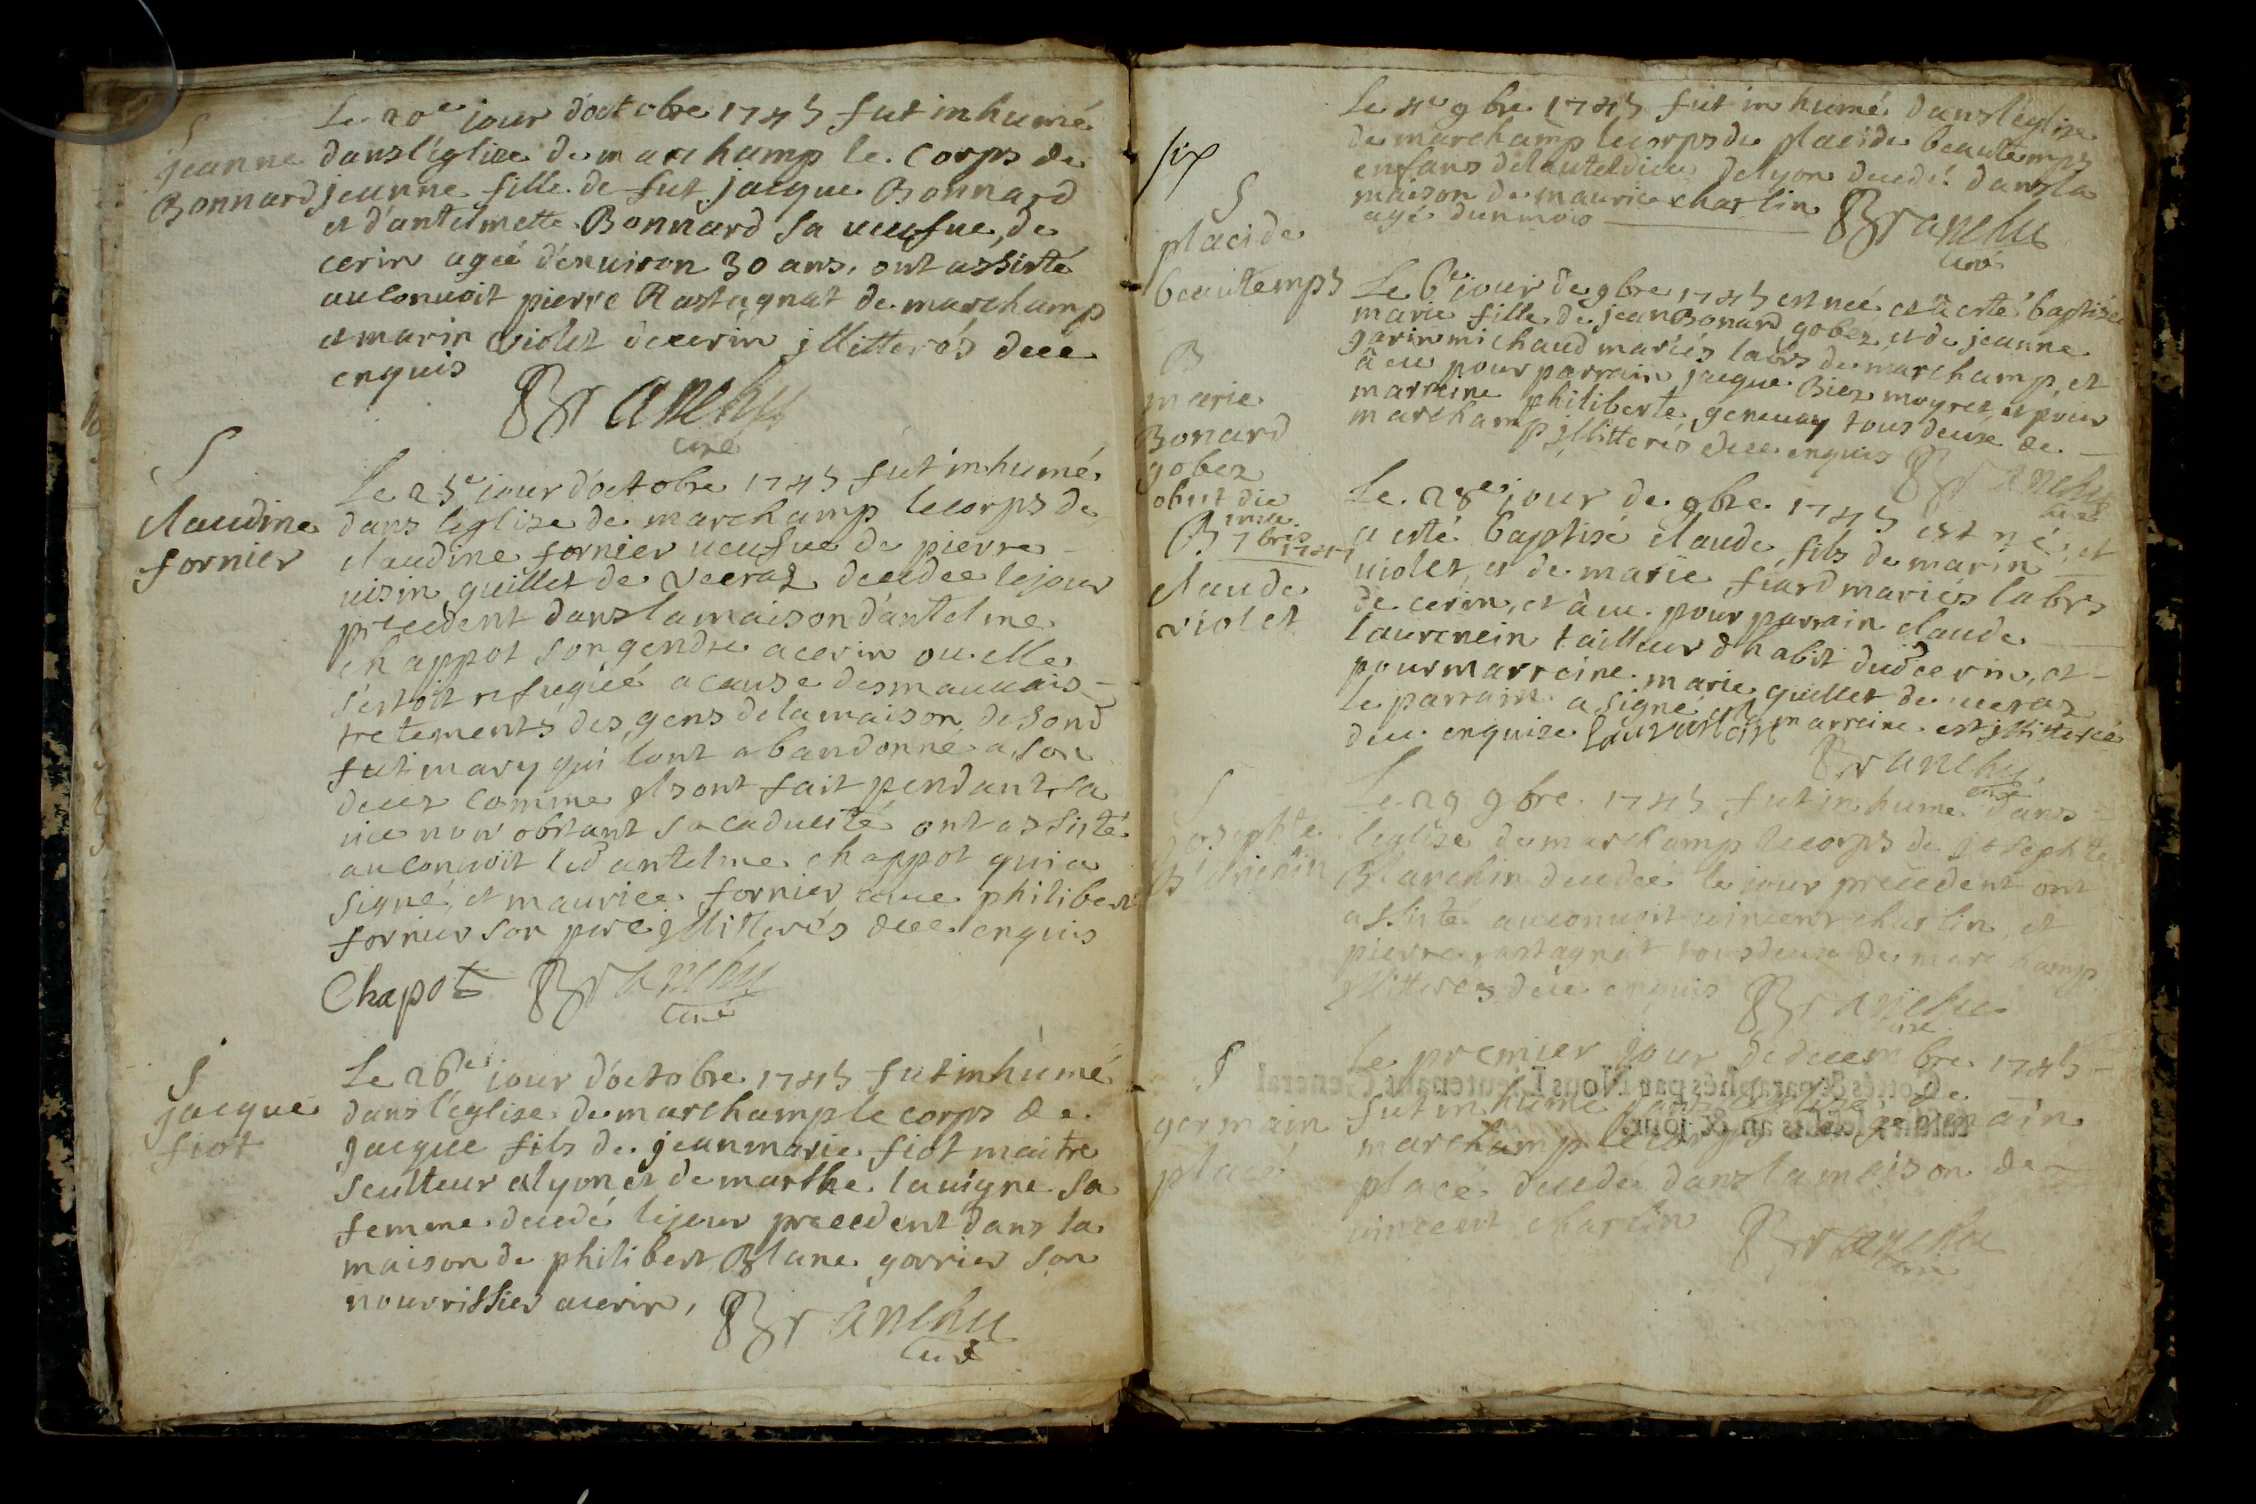 S
jeanne
Bonnard
Le 20e jour d'octobre 1745 fut inhumé
dans l'églize de marchamp le corps de
jeanne fille de fut jacque Bonnard
et d'antelmette Bonnard sa ueufue, de
cerin ageé d'enuiron 30 ans, ont assisté
au conuoit pierre Rastagnat de marchamp
et marin violet de cerin jllitterés de ce
enquis
Branchu
curé
S
claudine
fornier
Le 25e jour d'octobre 1745 fut inhumé
dans l'églize de marchamp le corps de
claudine fornier ueufue de pierre
uisin guillet de veeraz decedee le jour
precedent dans la maison d'antelme
chappot son gendre a cerin ou elle
s'estoit refugiée a cause des mauuais
tretements des gens de la maison de sond
fut mary qui lont abandonné a son
decez comme jls ont fait pendant sa
uie nonobstant sa caducité ont assisté
au conuoit led antelme chappot qui a
signé, et maurice fornier auec philibert
fornier son pere jllitterés de ce enquis
Chapot Branchu
curé
S
jacque
fiot
Le 26e jour d'octobre 1745 fut inhumé
dans l'églize de marchamp le corps de
jacque fils de jean marie fiot maitre
sculteur a lyon et de marthe lauigne sa
femme decedé le jour precedent dans la
maison de philibert Blanc gorrier son
nourrissier a cerin,
Branchu
curé
six
S
placide
beautemps
Le 4e 9bre 1745 fut inhumé dans l'églize
de marchamp le corps de placide beautemps
enfans de l'autel dieu de lyon decedé dans la
maison de maurice charlin
agé d'un mois
Branchu
curé
B
marie
Bonard
gobez
obiit die
7bris
Le 6e jour de 9bre 1745 est neé et a esté baptisée
marie fille de jean Bonard gobez et de jeanne
garin michaud mariés labrs de marchamp, et
à eu pour parrain jacque Biez moyret, et pour
marreine philiberte geneuay tous deux de
marchamp jllitterés de ce enquis
Branchu
curé
B
claude
violet
Le 28e jour de 9bre 1745 est né, et
a esté baptisé claude fils de marin
uiolet, et de marie fiard mariés labrs
de cerin, et à eu pour parrain claude
laurencin tailleur d'habit dud cerin, et
pour marreine marie guillet de ueraz
le parrain a signé et la marreine est jllitterée
de ce enquise laurancin
Branchu
curé
S
josephte
Blanchin
Le 29 9bre 1745 fut inhumé dans
l'églize de marchamp le corps de josephte
Blanchin decedeé le jour precedent ont
assisté au conuoit uincent charlin, et
pierre rastagnat tous deux de marchamp
jllitterés de ce enquis
Branchu
curé
S
germain
placé
Le premier jour de decembre 1745
fut inhumé dans l'églize de
marchamp le corps de germain
placé decedé dans la maison de
uincent charlin
Branchu
curé